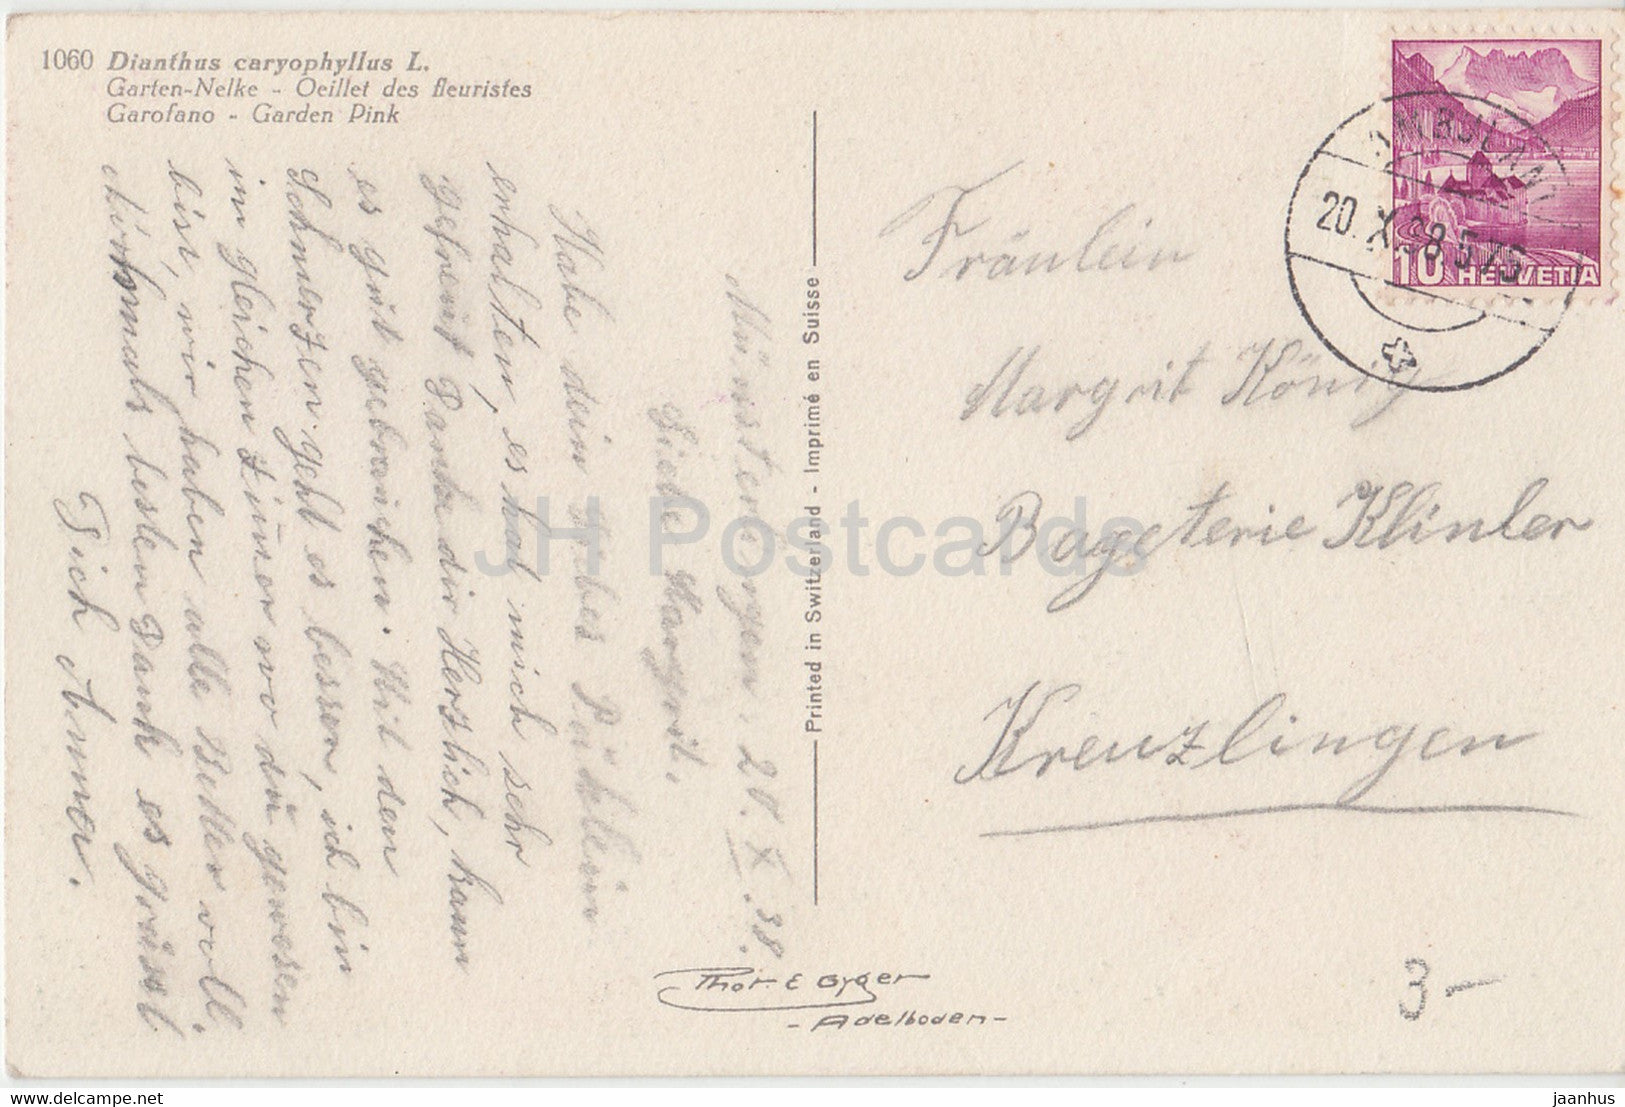 1060 Dianthus caryophyllus L.
Garten-Nelke - Oeillet des fleuristes
Garofano - Garden Pink
Münsterlingen, 20. X. 38.
Liebe Margrit.
Habe dein liebes Päcklein
erhalten, es hat mich sehr
gefreut Danke dir Herzlich, kann
es gut gebrauchen. Mit den
Schmerzen geht es besser, ich bin
im gleichen Zimer wo du gewesen
bist, wir haben alle Better voll.
Nochmals besten Dank es grüsst
Dich Anna.
Printed in Switzerland - Imprimé en Suisse
Phot. E Gyger
- Adelboden -
AMBULANT
20. X. 38. 5
10 HELVETIA
Fräulein
Margrit König
Bageterie Klinler
Kreuzlingen
3-
JH Postcards
delcampe.net
jaanhus